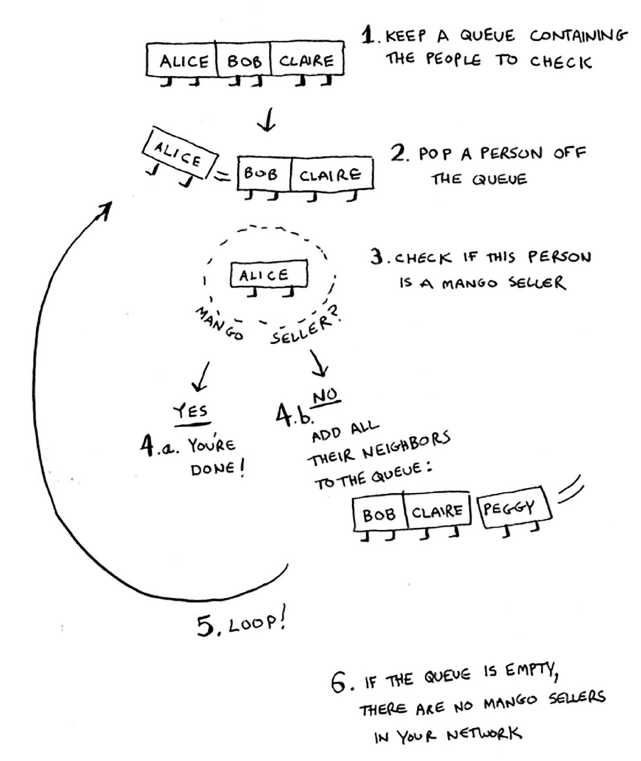 1. KEEP A QUEUE CONTAINING
THE PEOPLE TO CHECK
ALICE BOB CLAIRE
2. POP A PERSON OFF
THE QUEUE
ALICE = BOB CLAIRE
3. CHECK IF THIS PERSON
IS A MANGO SELLER
ALICE
MANGO SELLER?
YES
4.a. YOU'RE
DONE!
NO
4.b.
ADD ALL
THEIR NEIGHBORS
TO THE QUEUE:
BOB CLAIRE PEGGY
5. LOOP!
6. IF THE QUEUE IS EMPTY,
THERE ARE NO MANGO SELLERS
IN YOUR NETWORK